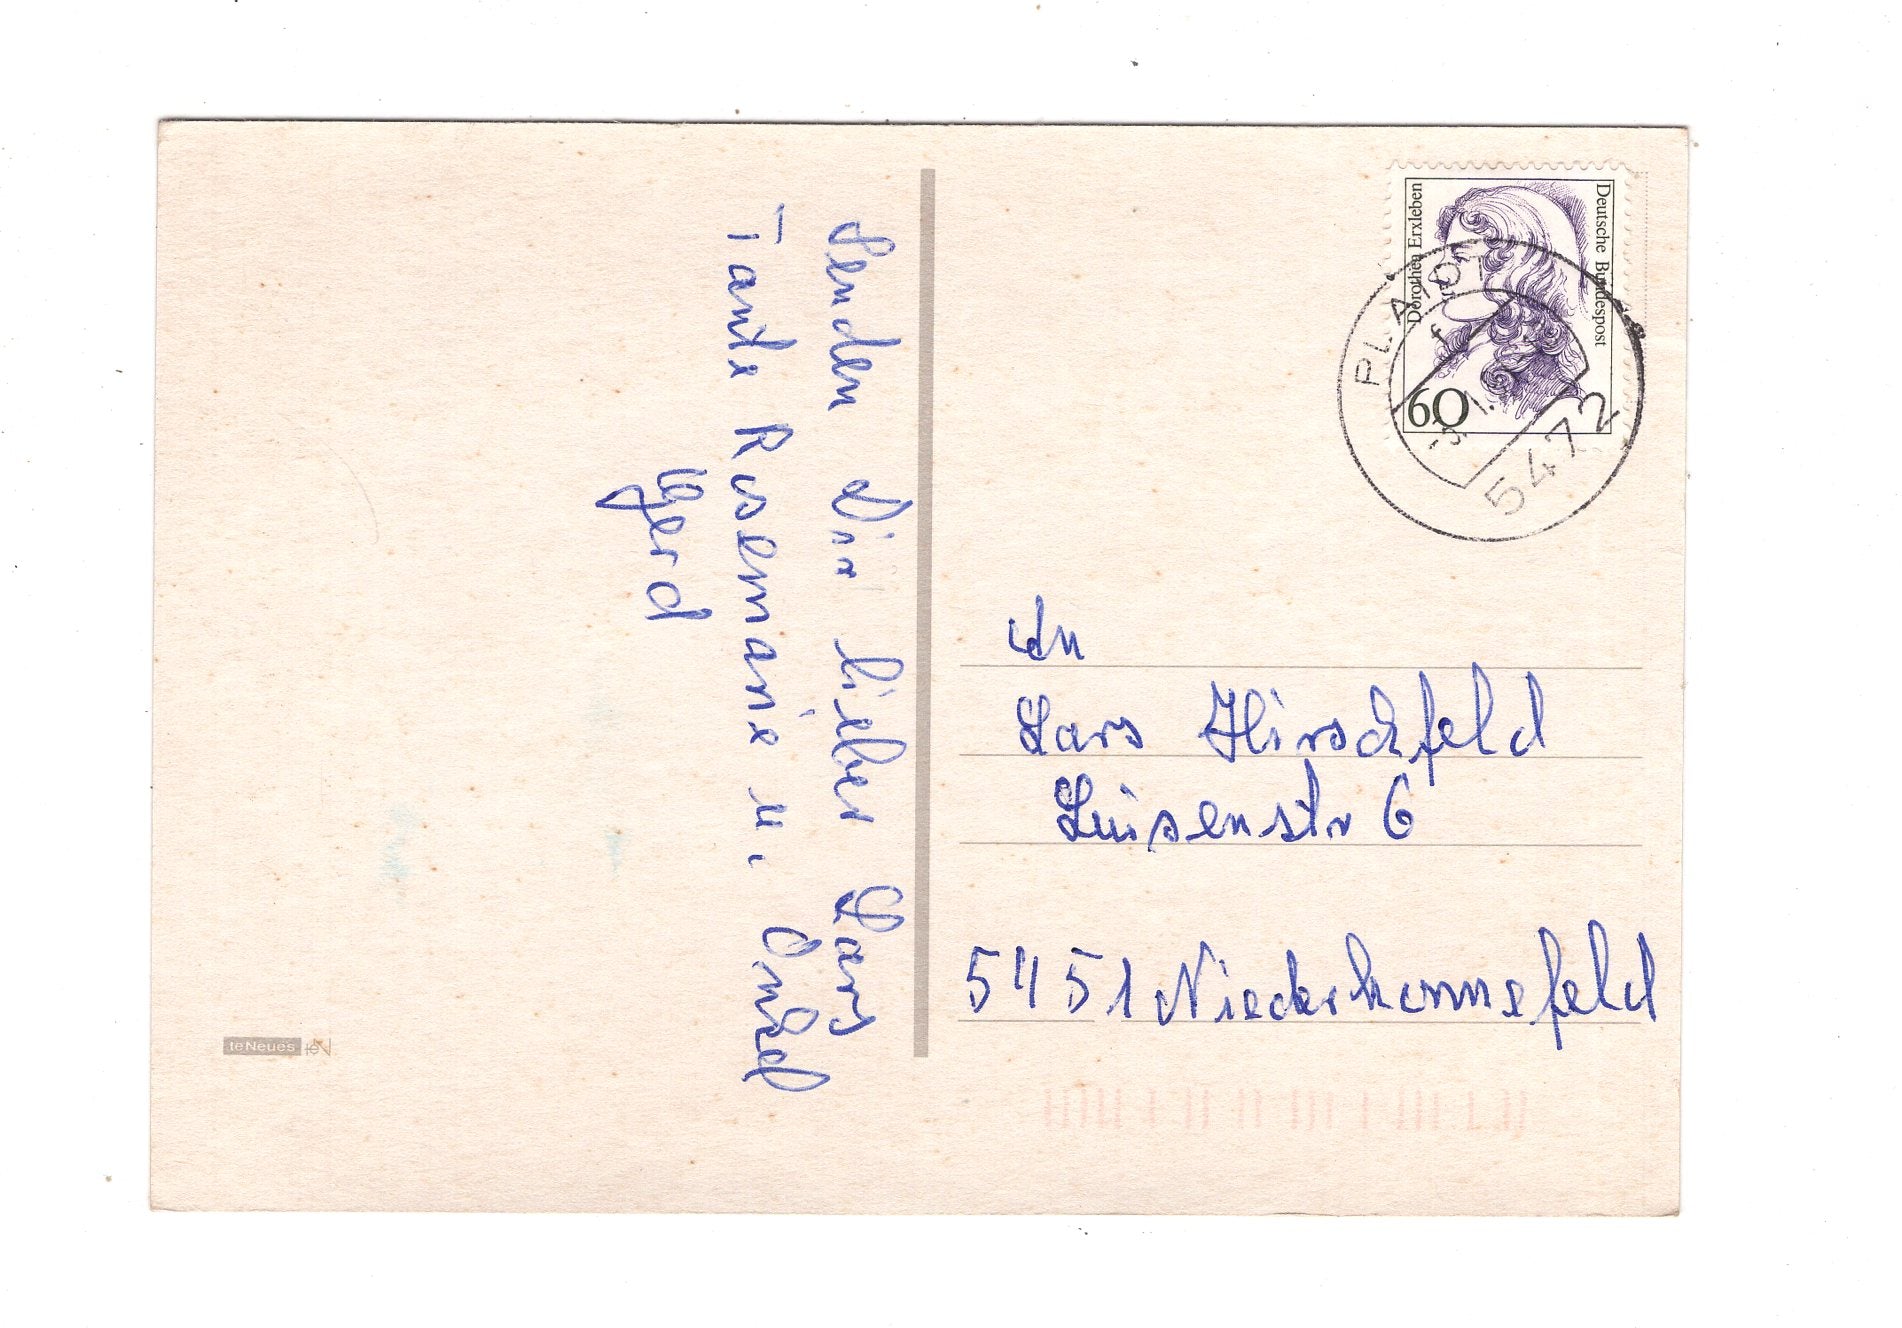 Senden Dir lieber Lars
Tante Rosemarie u. Onkel
Gerd
Deutsche Bundespost
Dorothea Erxleben
60
PLAIDT
5472
An
Lars Hirschfeld
Luisenstr 6
5451 Niederhonnefeld
teNeues